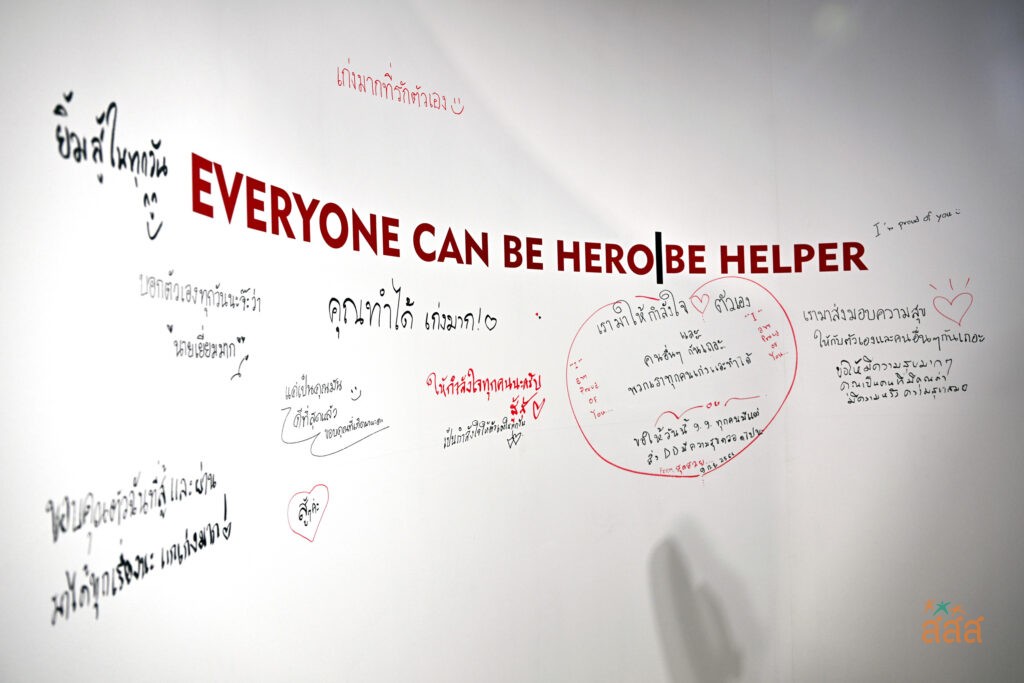 เก่งมากที่รักตัวเอง
ยิ้มสู้ในทุกวัน
EVERYONE CAN BE HERO|BE HELPER
I'm proud of you
บอกตัวเองทุกวันนะจ๊ะว่า
นายเยี่ยมมาก
คุณทำได้ เก่งมาก!
แค่เป็นคุณมัน
ดีที่สุดแล้ว
ให้กำลังใจทุกคนนะครับ
สู้สู้
เป็นกำลังใจให้
เรามาให้กำลังใจ ตัวเอง
และ
คนอื่นๆ กันเถอะ
พวกเราทุกคนเก่งและทำได้
"I"
am
Proud
of
You...
"I"
am
Proud
of
You...
ขอให้วันนี้ 9.9. ทุกคนมีแต่
สิ่ง DD มีความสุข
เรามาส่งมอบความสุข
ให้กับตัวเองและคนอื่นๆกันเถอะ
ขอให้มีความสุขมากๆ
คุณเป็นคนที่มีคุณค่า
สู้ๆค่ะ
ขอบคุณตัวฉันที่สู้และผ่าน
มาได้ทุกเรื่องนะ แกเก่งมาก!
สสส